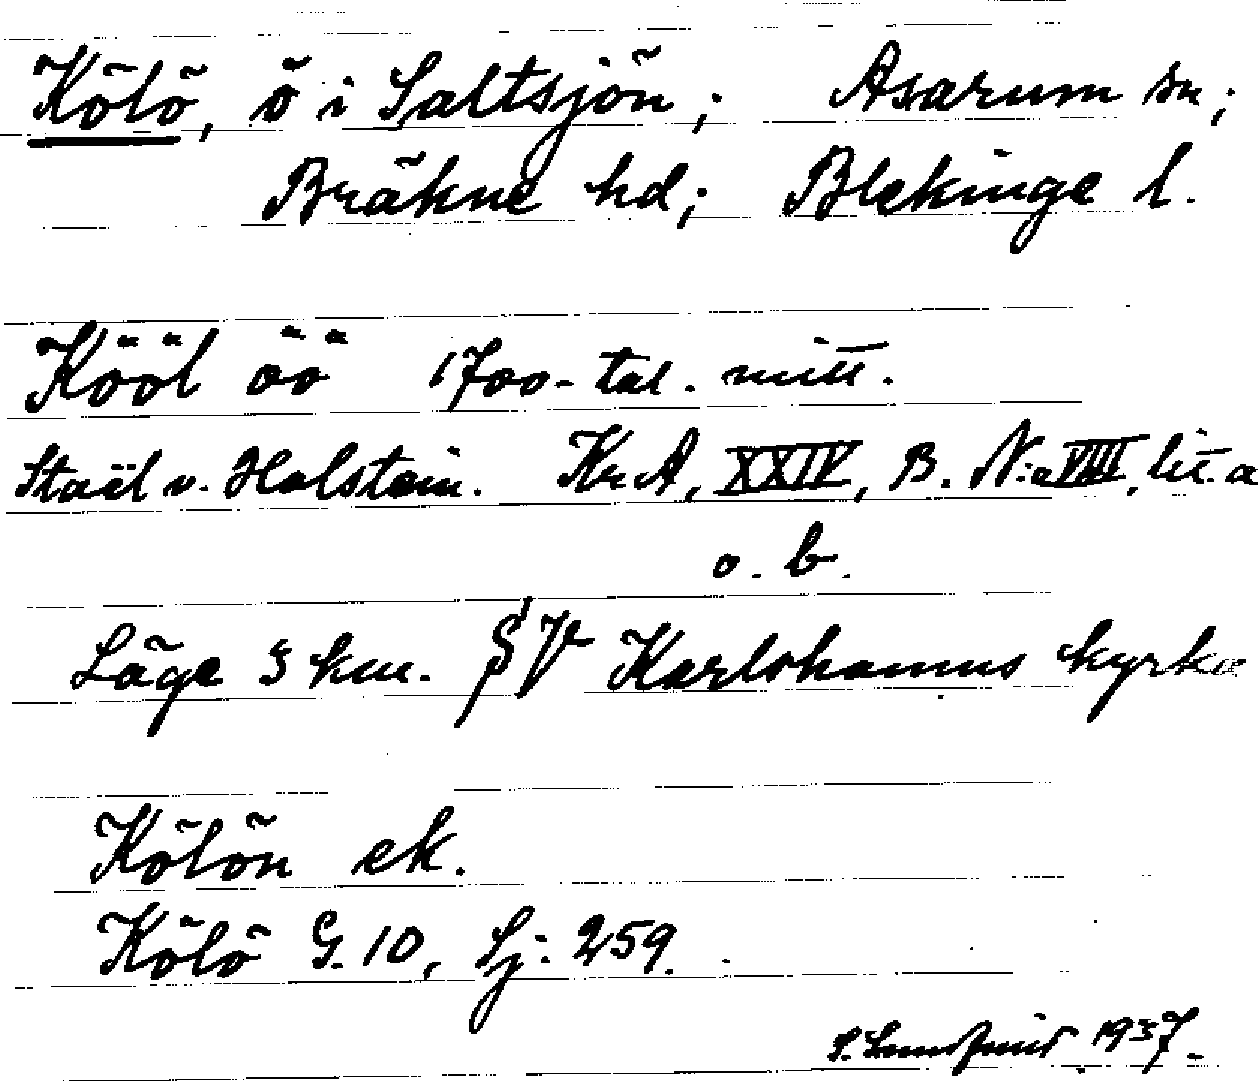 Kölö, ö i Saltsjön; Asarum sn;
Bräkne hd; Blekinge l.
Kööl öö 1700-tal. mitt.
Staël v. Holstein. Kr.A, XXIV, B. N:o VIII, lit. a
o. b.
Läge 3 km. SV Karlshamns kyrka
Kölön ek.
Kölö G. 10, Sj: 259.
S. 1937.